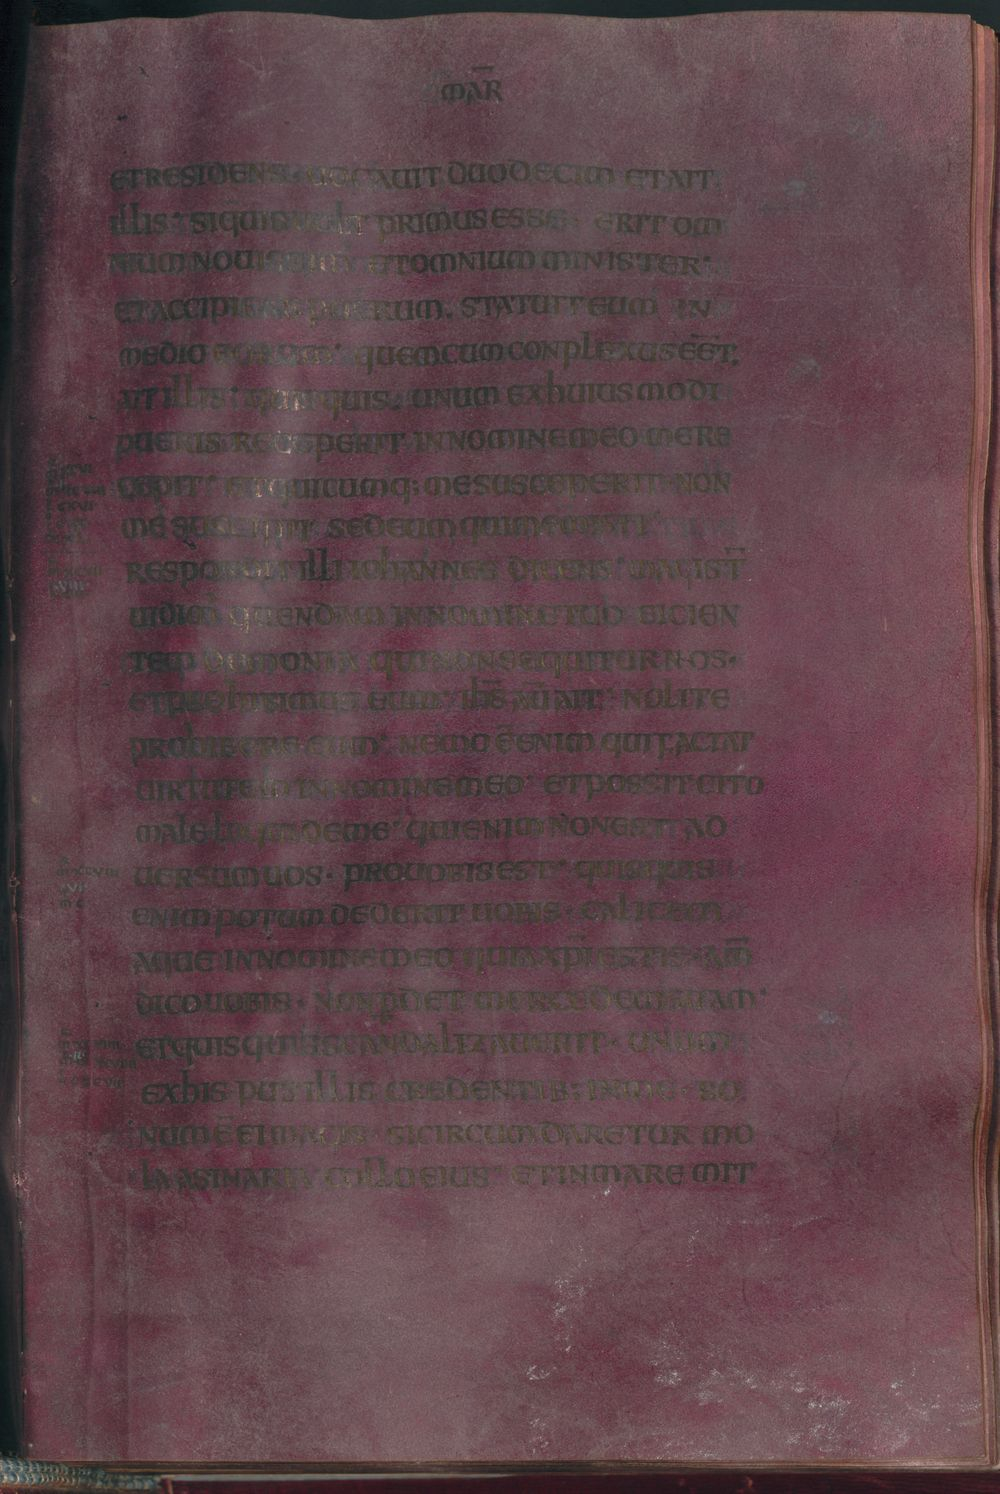 MAR̅
ET RESIDENS· UOCAUIT DUODECIM ET AIT
ILLIS· SIQUIS UULT PRIMUS ESSE· ERIT OM
NIUM NOUISSIMUS ET OMNIUM MINISTER·
ET ACCIPIENS PUERUM· STATUIT EUM IN
MEDIO EORUM· QUEM CUM CONPLEXUS ĒĒT·
AIT ILLIS· QUIS UNUM EX HUIUSMODI
PUERIS RECEPERIT IN NOMINE MEO ME RE
CEPIT· ET QUICUMQ; ME SUSCEPERIT· NON
ME SUSCIPIT SED EUM QUI ME MISIT
RESPONDIT ILLI IOHANNES DICENS· MAGIST̄
UIDIM̅ QUENDAM IN NOMINE TUO EICIEN
TEM DEMONIA QUI NON SEQUITUR NOS·
ET PROHIBUIMUS EUM· IHS̅ AU̅ AIT· NOLITE
PROHIBERE EUM· NEMO Ē ENIM QUI FACIAT
UIRTUTEM IN NOMINE MEO· ET POSSIT CITO
MALE LOQUI DE ME· QUI ENIM NON EST AD
UERSUM UOS· PRO UOBIS EST· QUISQUIS
ENIM POTUM DEDERIT UOBIS· CALICEM
AQUE IN NOMINE MEO QUIA XP̅I ESTIS· AM̅
DICO UOBIS· NON P̲DET MERCEDEM SUAM·
ET QUISQUIS SCANDALIZAUERIT· UNUM
EX HIS PUSILLIS CREDENTIB; IN ME· BO
NUM Ē EI MAGIS· SI CIRCUMDARETUR MO
LA ASINARIA COLLO EIUS· ET IN MARE MIT